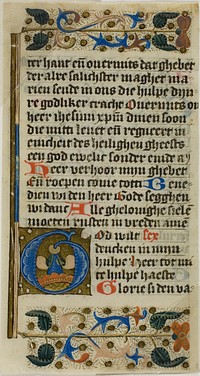 ter hant eñ ouermits dat ghebet
der alre salichster maghet ma
rien sende in ons die hulpe dijn
re godliker cracht Ouermits on
heer ihesum xp̄m dinen soon
die mitti leuet eñ regneert in
enicheit des heilighen gheests
een god ewelic sonder ende a
Heer verhoor mijn ghebet
Eñ roepen come totti Bene
dien wi den heer Gode segghen
wi danc Alle ghelouighe sielē
moeten rusten in vreden amē
God wilt sex
dencken in mijnre
hulpe Heer tot mi
re hulpe haeste
Glorie si den va